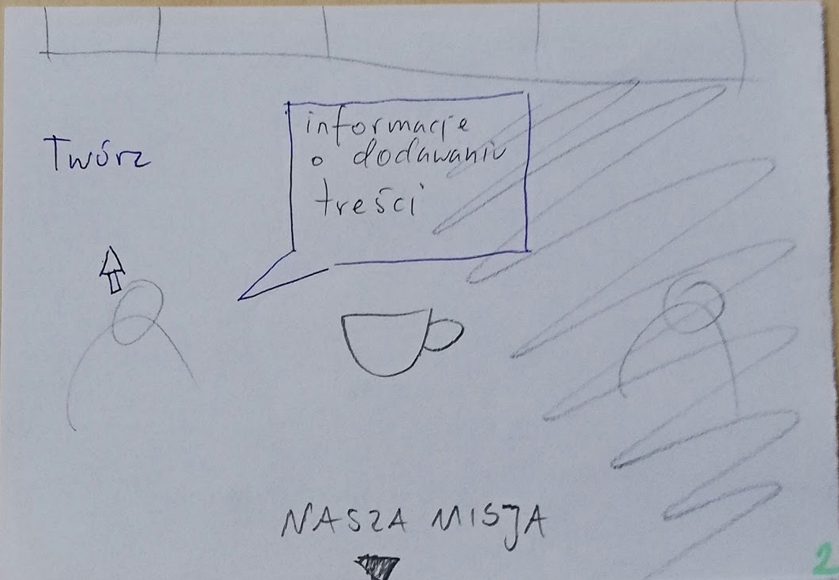 Twórz
informacje
o dodawaniu
treści
NASZA MISJA
2